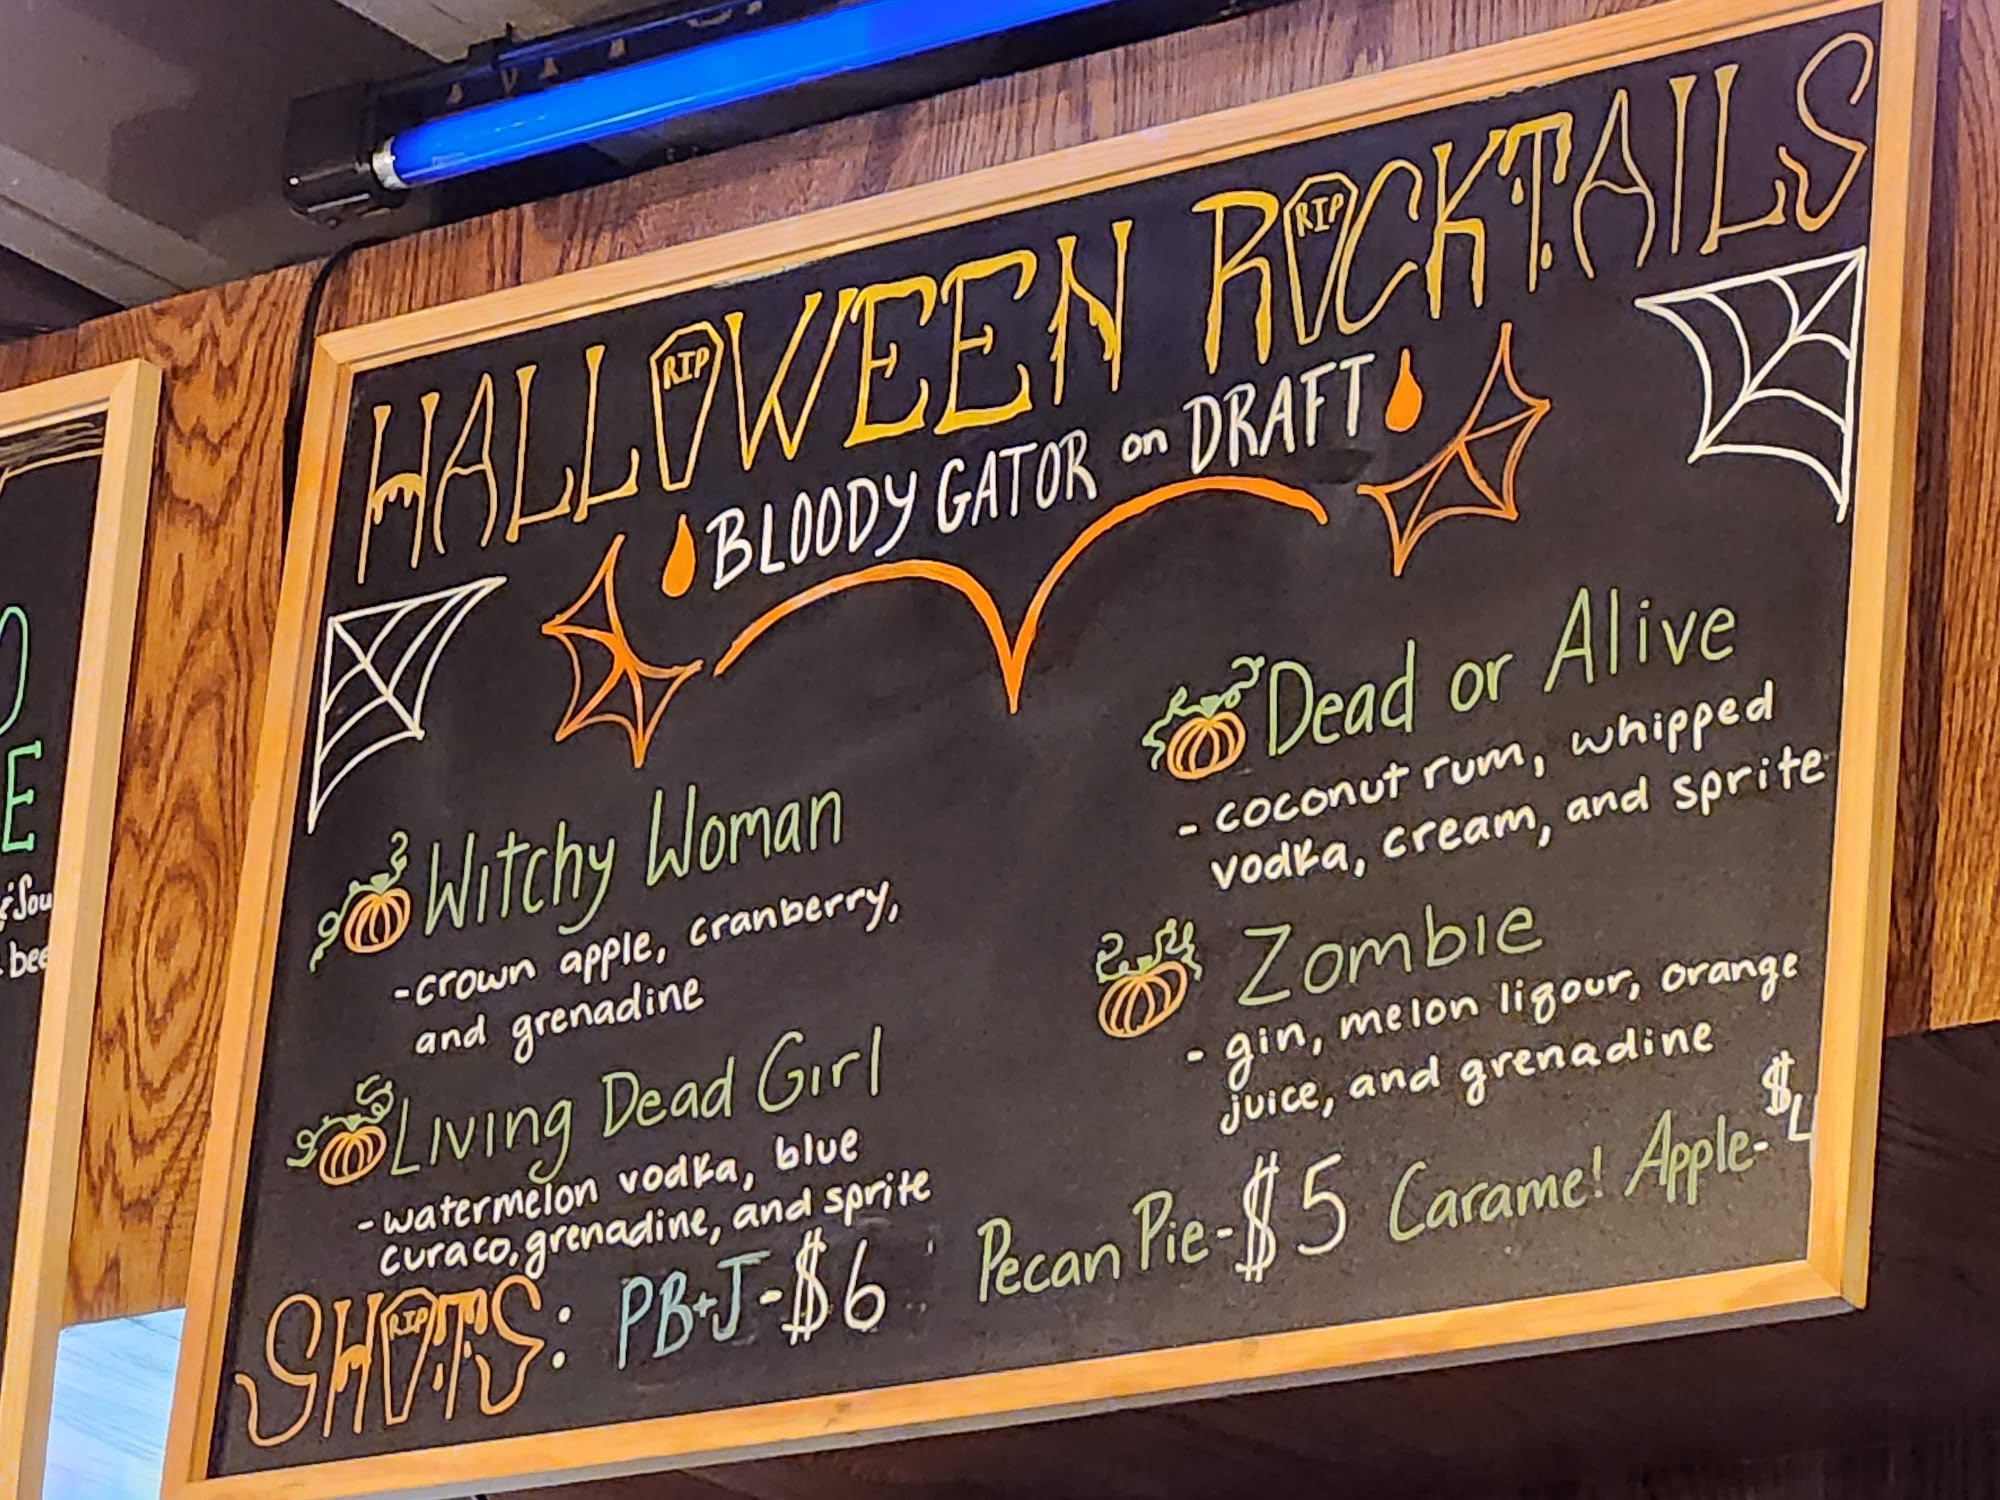 HALLOWEEN ROCKTAILS
RIP
RIP
BLOODY GATOR on DRAFT
Witchy Woman
- crown apple, cranberry,
and grenadine
Living Dead Girl
- watermelon vodka, blue
curaco, grenadine, and sprite
Dead or Alive
- coconut rum, whipped
vodka, cream, and sprite
Zombie
- gin, melon liqour, orange
juice, and grenadine
SHOTS: PB+J - $6 Pecan Pie - $5 Caramel Apple - $4
RIP
E
& Sou
bee